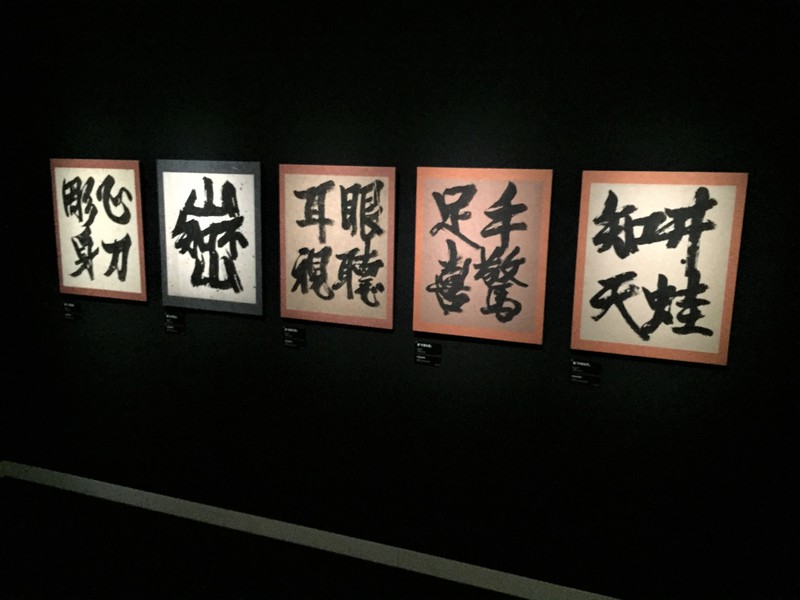 心刀
彫身
山
不知
山
眼聴
耳視
手驚
足喜
井蛙
知天